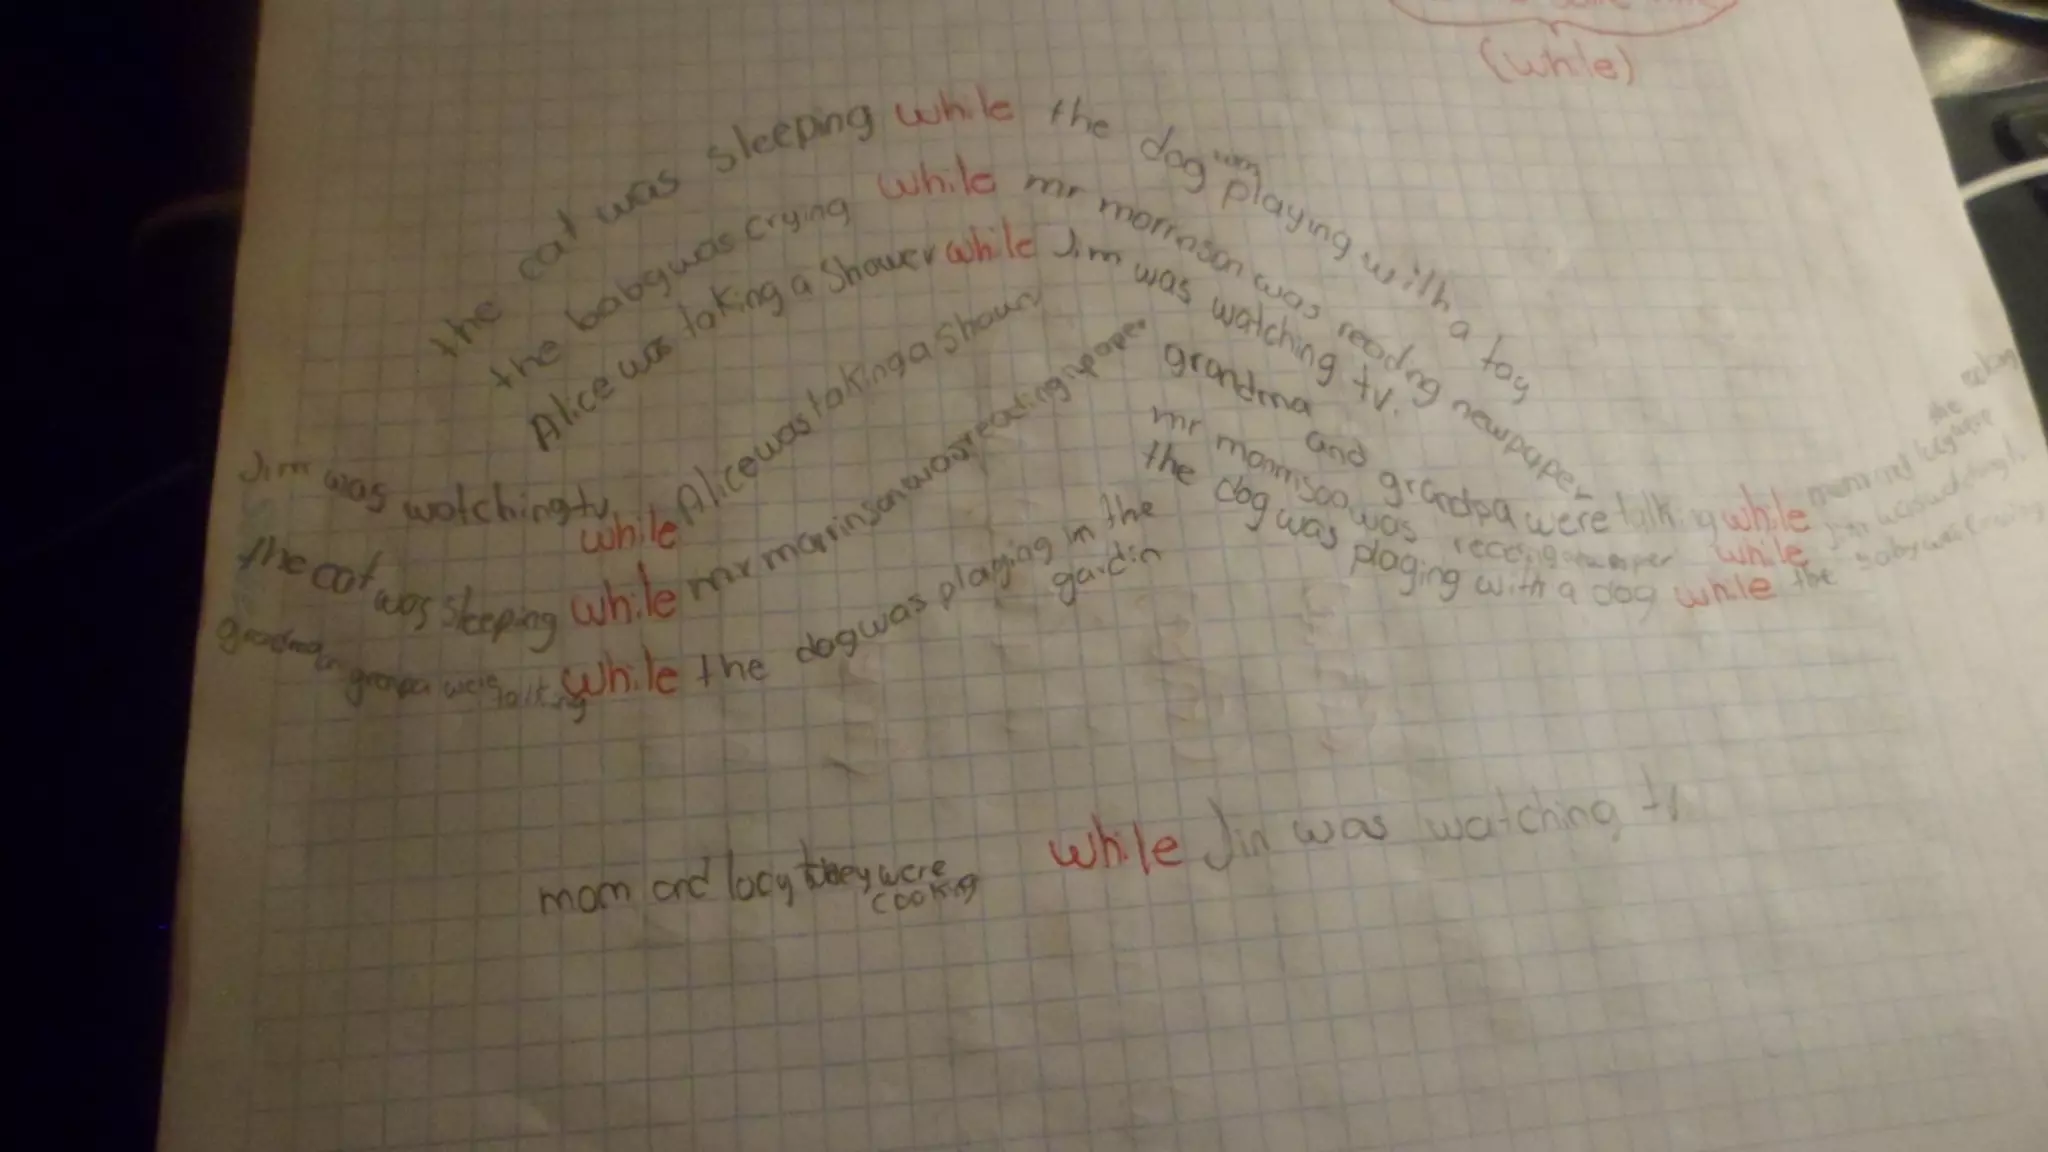 (while)
the cat was sleeping while the dog was playing with a toy
the baby was crying while mr morrinson was reading newpaper
Alice was taking a shower while Jim was watching tv.
Jim was watching tv. while Alice was taking a shower
the cat was sleeping while mr morrinson was reading npaper
grandma grampa were talking while the dog was playing in the gardin
grandma and grandpa were talking while mom and lucy were cooking
mr morrinson was reading while Jim was watching
the dog was playing with a dog while the baby was crying
mom and lacy they were cooking while Jin was watching tv